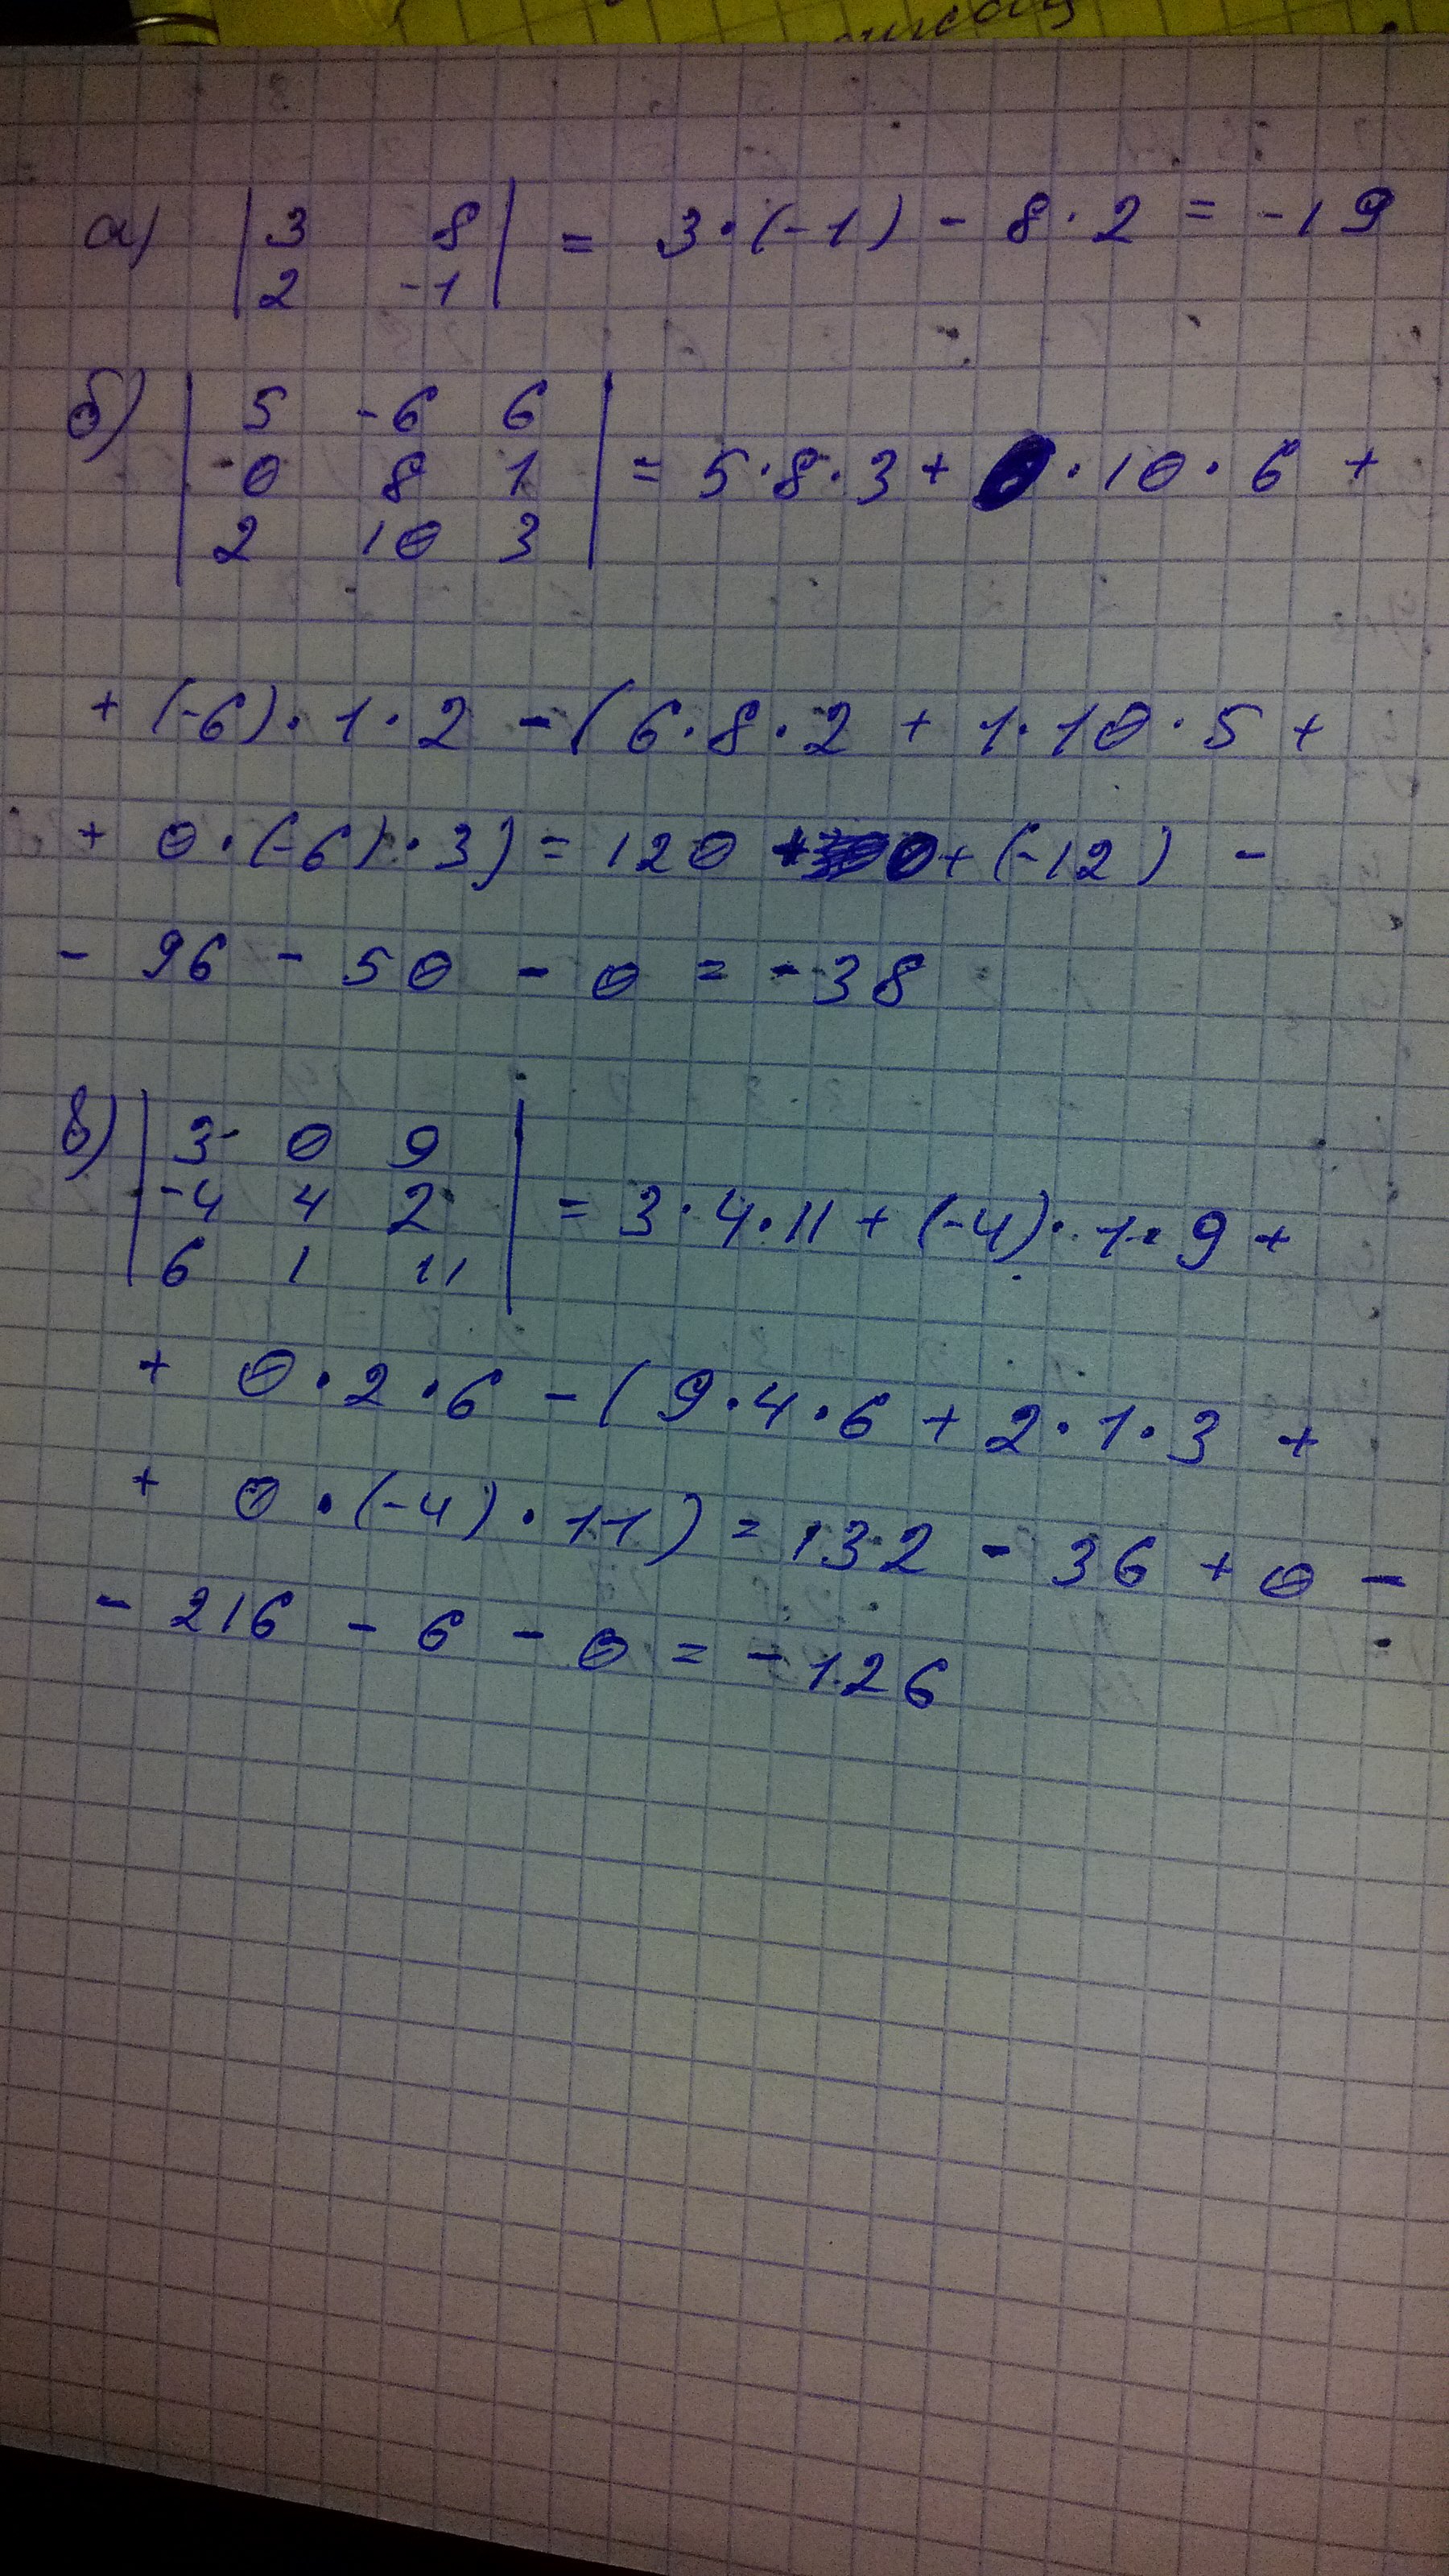 а) | 3 8 | = 3·(-1) - 8·2 = -19
| 2 -1 |
б) | 5 -6 6 |
| 0 8 1 | = 5·8·3 + 0·10·6 +
| 2 10 3 |
+ (-6)·1·2 - (6·8·2 + 1·10·5 +
+ 0·(-6)·3) = 120 + 0 + (-12) -
- 96 - 50 - 0 = -38
в) | 3 0 9 |
| -4 4 2 | = 3·4·11 + (-4)·1·9 +
| 6 1 11 |
+ 0·2·6 - (9·4·6 + 2·1·3 +
+ 0·(-4)·11) = 132 - 36 + 0 -
- 216 - 6 - 0 = -126